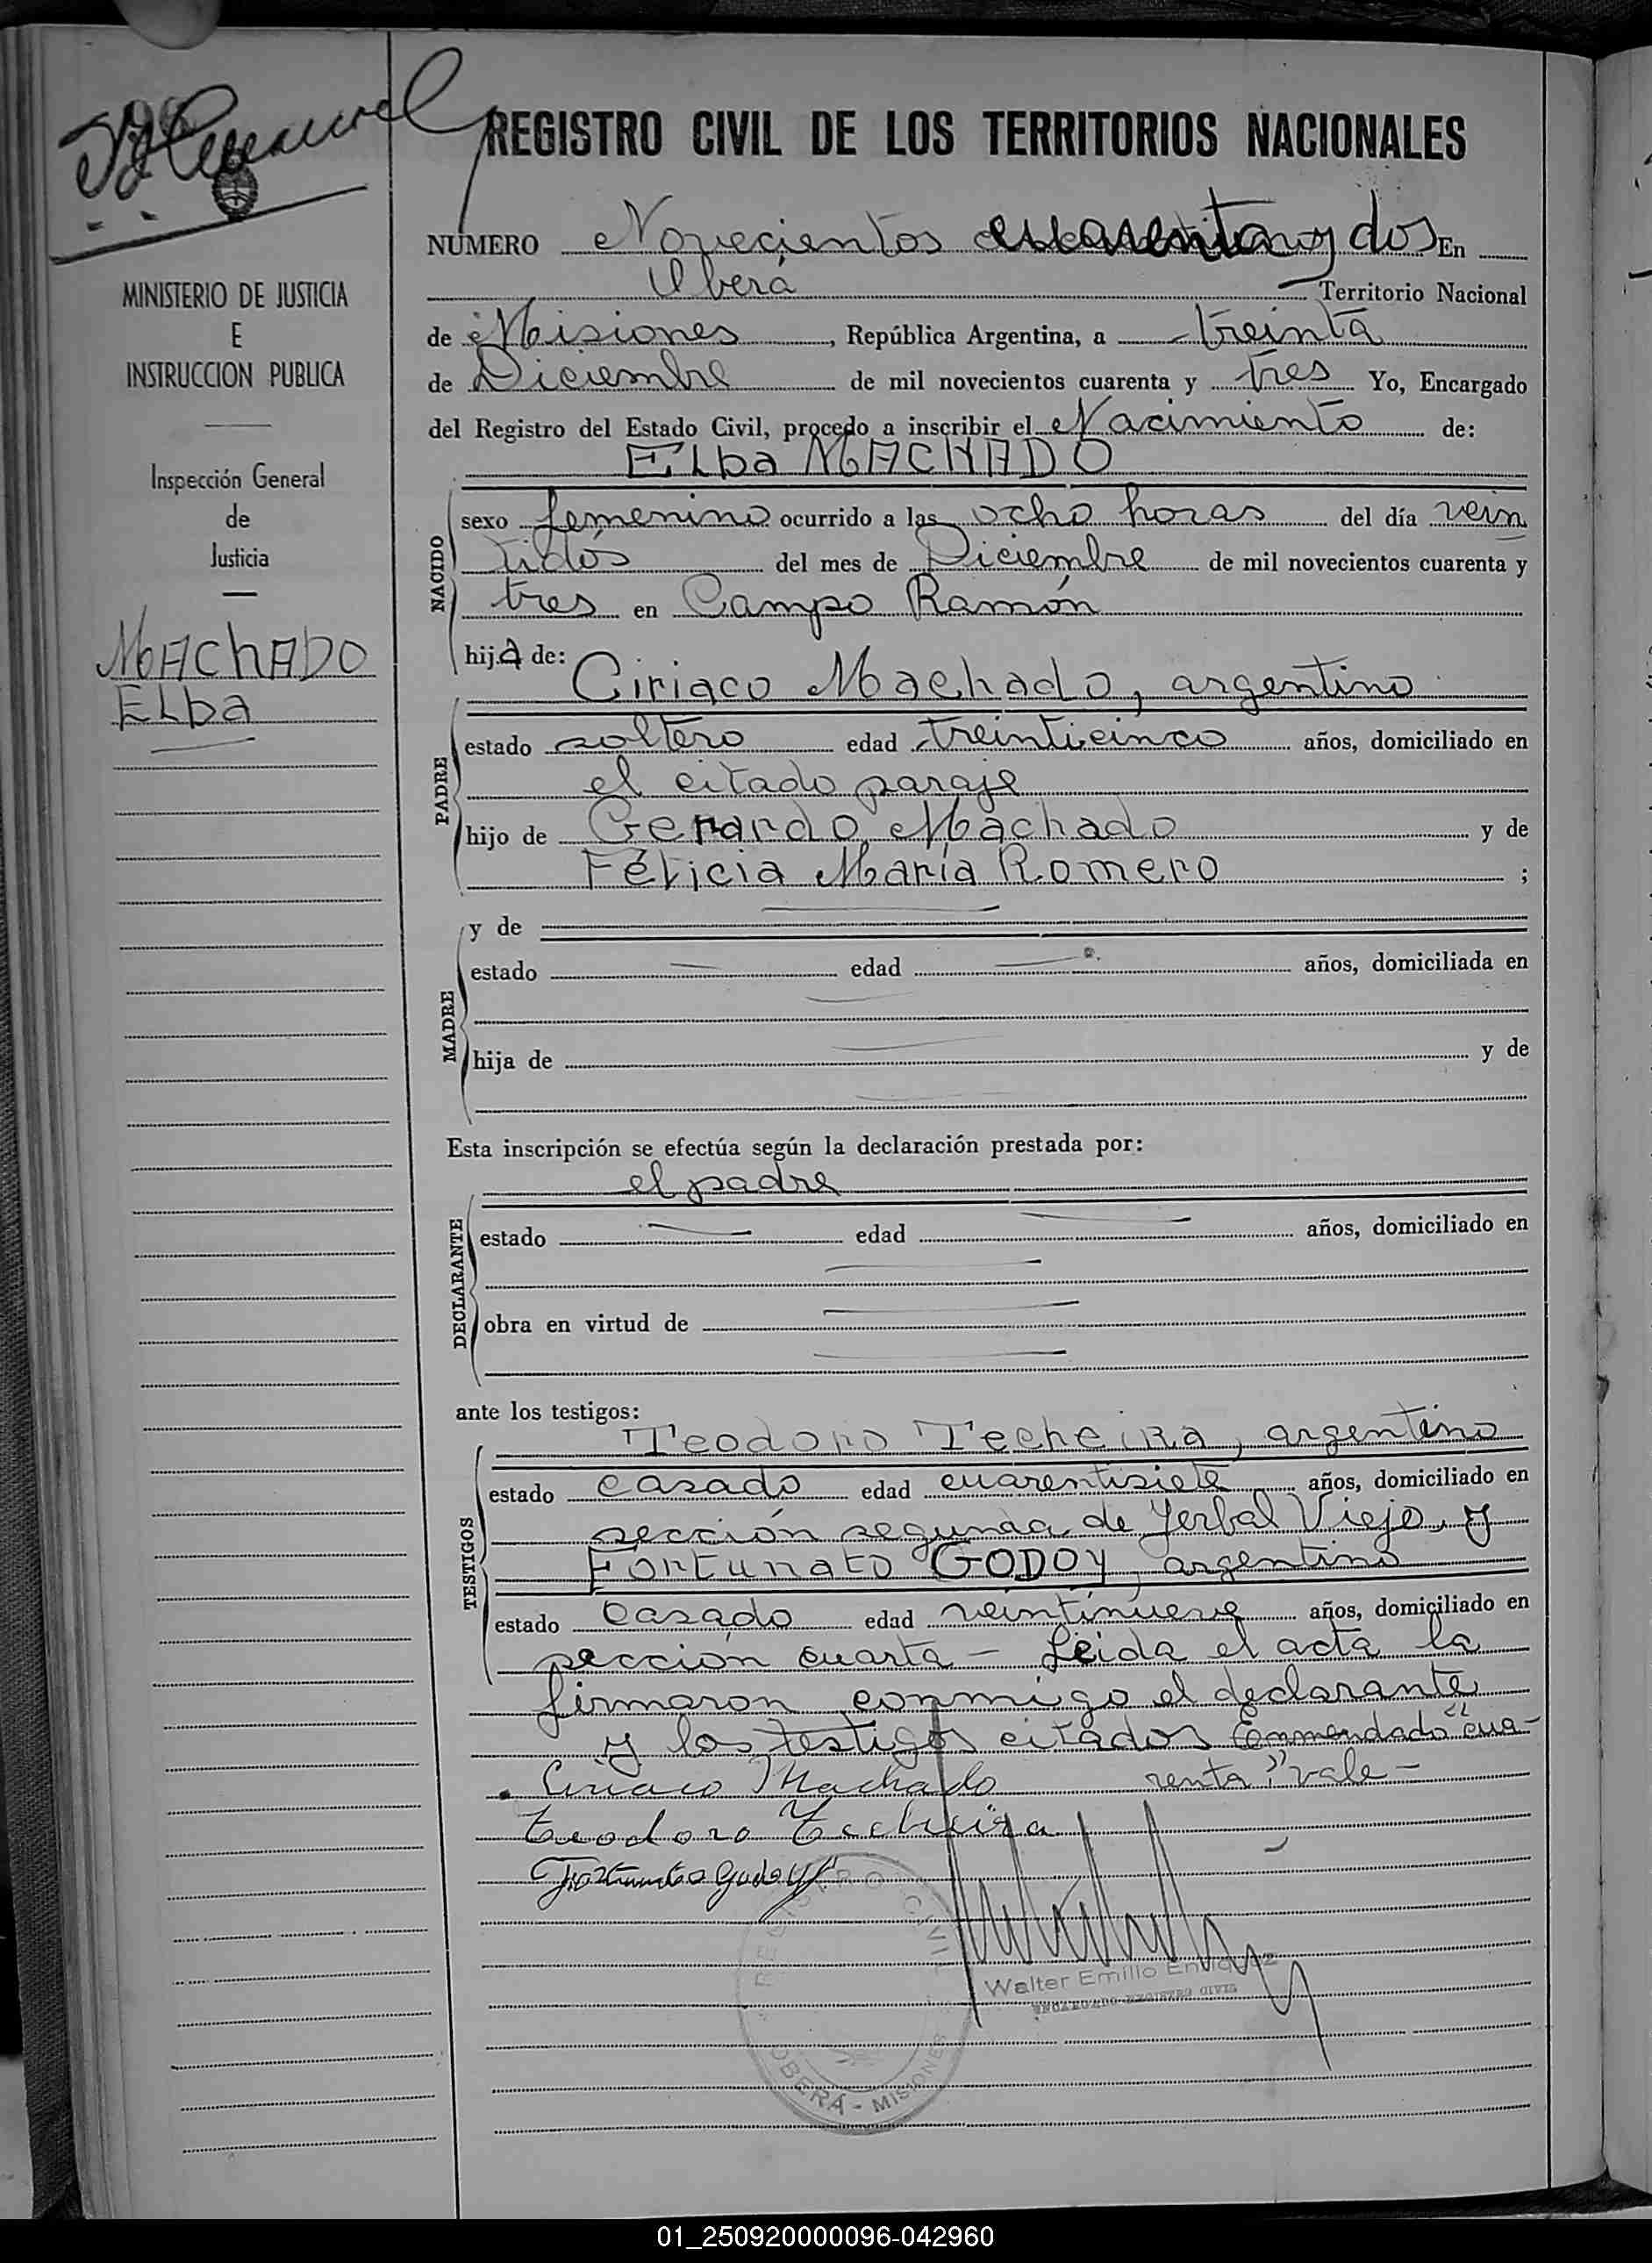 REGISTRO CIVIL DE LOS TERRITORIOS NACIONALES
MINISTERIO DE JUSTICIA
E
INSTRUCCION PUBLICA
Inspección General
de
Justicia
MACHADO
Elba
NÚMERO Novecientos cuarenta y dos En
Oberá Territorio Nacional
de Misiones, República Argentina, a treinta
de Diciembre de mil novecientos cuarenta y tres Yo, Encargado
del Registro del Estado Civil, procedo a inscribir el Nacimiento de:
Elba MACHADO
NACIDO
sexo femenino ocurrido a las ocho horas del día vein
tidós del mes de Diciembre de mil novecientos cuarenta y
tres en Campo Ramón
hija de:
PADRE
Ciriaco Machado, argentino
estado soltero edad treinticinco años, domiciliado en
el citado paraje
hijo de Gerardo Machado y de
Felicia María Romero ;
MADRE
y de
estado edad años, domiciliada en
hija de y de
Esta inscripción se efectúa según la declaración prestada por:
el padre
DECLARANTE
estado edad años, domiciliado en
obra en virtud de
ante los testigos:
TESTIGOS
Teodoro Techeira, argentino
estado casado edad cuarentisiete años, domiciliado en
sección segunda de Yerbal Viejo, y
Fortunato GODOY, argentino
estado casado edad veintinueve años, domiciliado en
sección cuarta - Leida el acta la
firmaron conmigo el declarante
y los testigos citados Enmendado "cua-
renta" vale -
Ciriaco Machado
Teodoro Techeira
Fortunato Godoy
REGISTRO CIVIL
OBERÁ - MISIONES
Walter Emilio Enriquez
ENCARGADO REGISTRO CIVIL
01_250920000096-042960